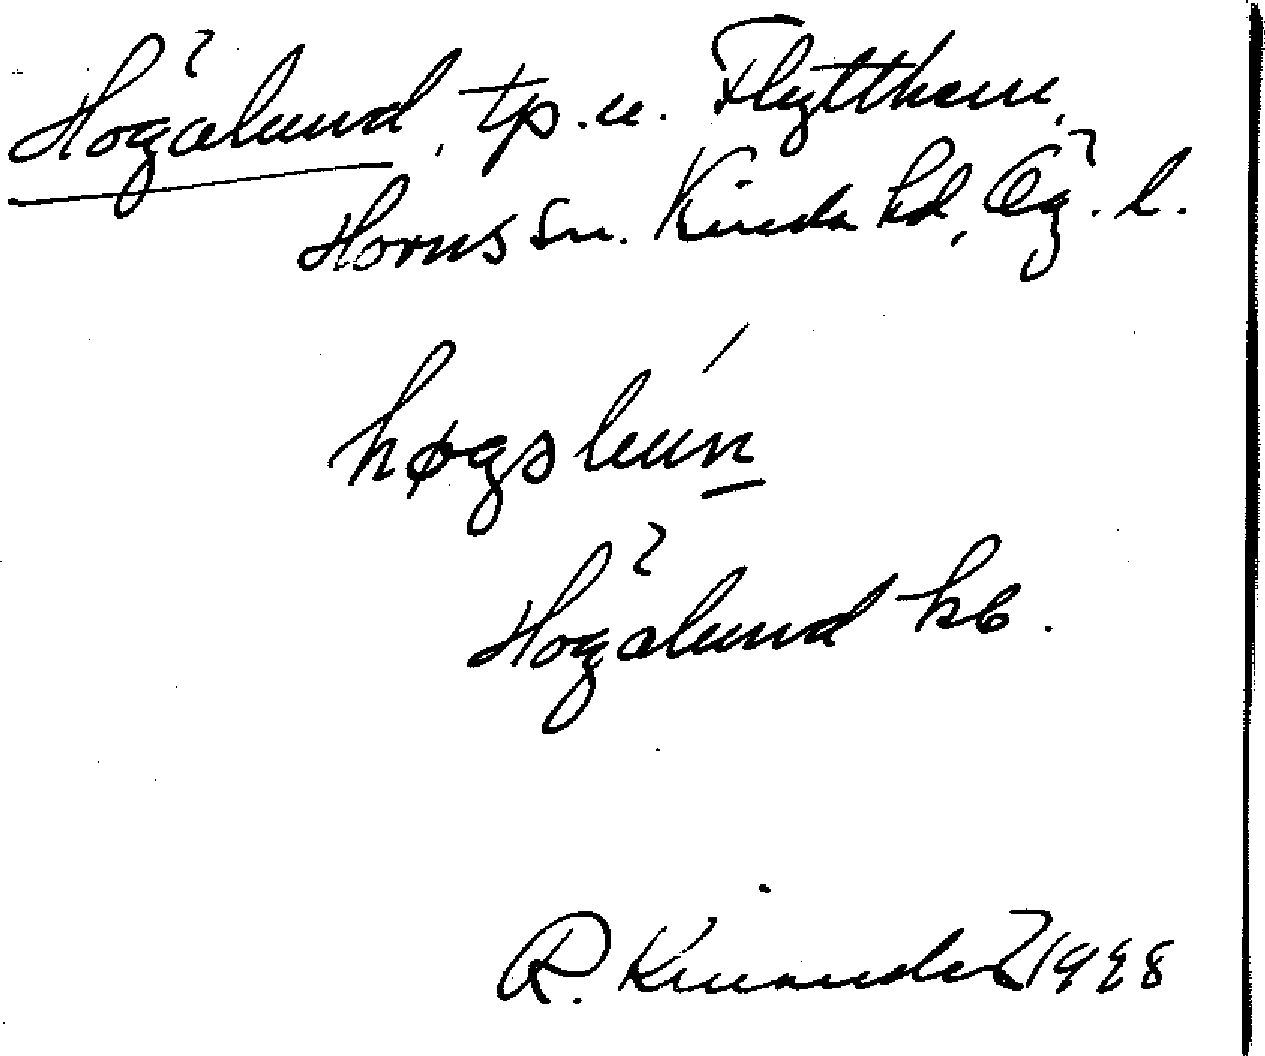 Högalund, tp. u. Flytthem,
Horns sn. Kinda hd, Ög. l.
høgsluńn
Högalund kb.
R. Kinander 1928